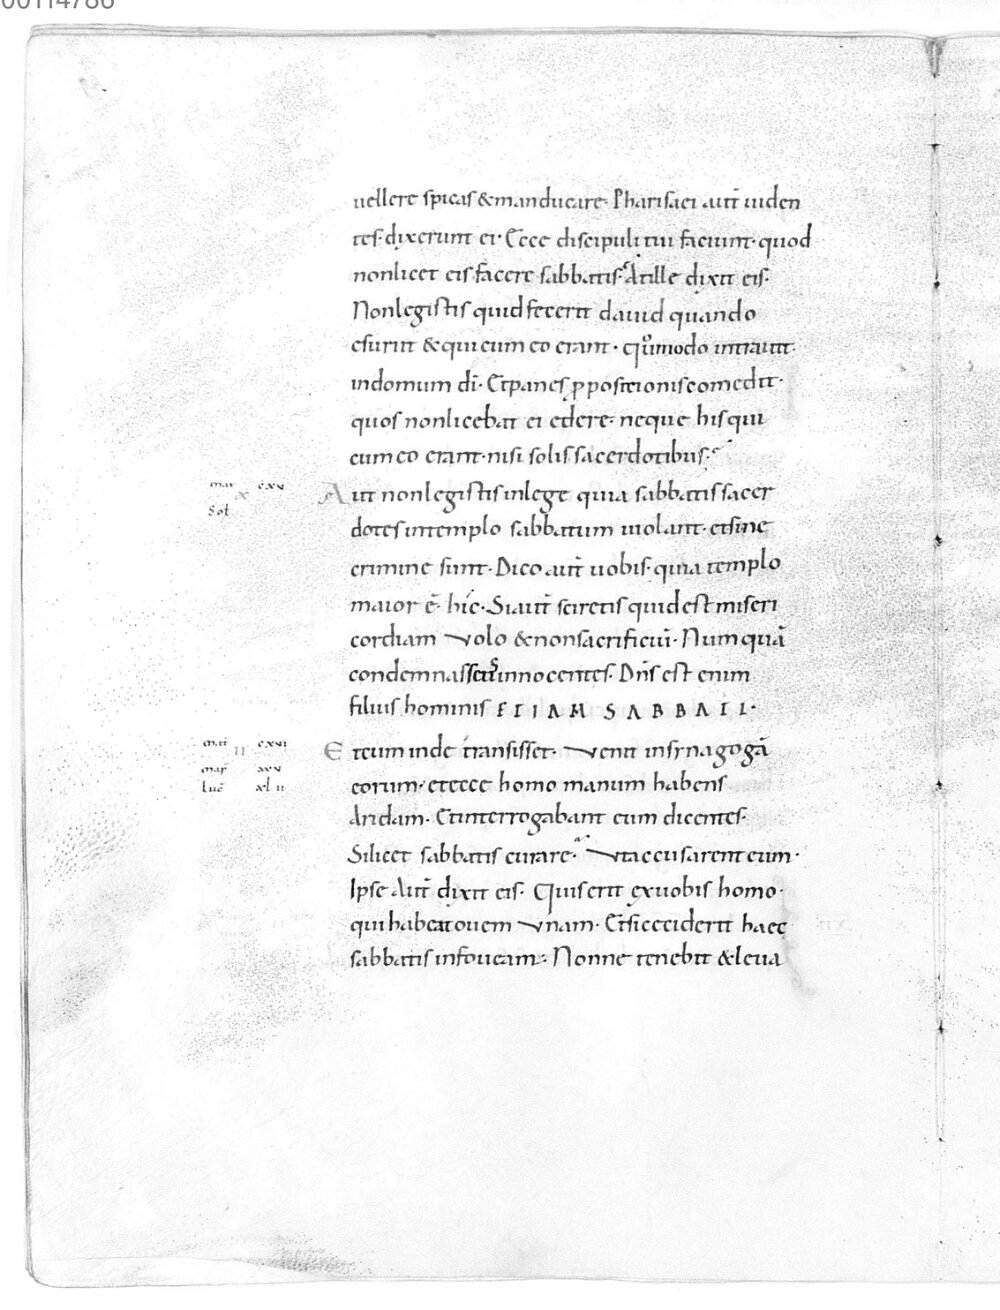 00114786
uellere spicas & manducare. Pharisaei aut̄ uiden
tes. dixerunt ei. Ecce discipuli tui faciunt. quod
non licet eis facere sabbatis. At ille dixit eis.
Non legistis quid fecerit dauid quando
esuriit & qui cum eo erant. quomodo intrauit.
in domum dī. Et panes ꝓpositionis comedit.
quos non licebat ei edere. neque his qui
cum eo erant. nisi solis sacerdotibus.
mat cxv
x
Sol
Aut non legistis in lege quia sabbatis sacer
dotes in templo sabbatum uiolant. et sine
crimine sunt. Dico aut̄ uobis. quia templo
maior ē. hic. Si aut̄ sciretis quid est miseri
cordiam volo & non sacrificiū. Numquā
condemnassetis innocentes. Dn̄s est enim
filius hominis ETIAM SABBATI.
mat cxvi
II
mar xxv
Luc xl ii
Et cum inde transisset. venit in synagogā
eorum. et ecce homo manum habens
Aridam. Et interrogabant eum dicentes.
Si licet sabbatis curare. vt accusarent eum.
Ipse Aut̄ dixit eis. Quis erit ex uobis homo.
qui habeat ouem vnam. Et si ceciderit haec
sabbatis in foueam. Nonne tenebit & leua